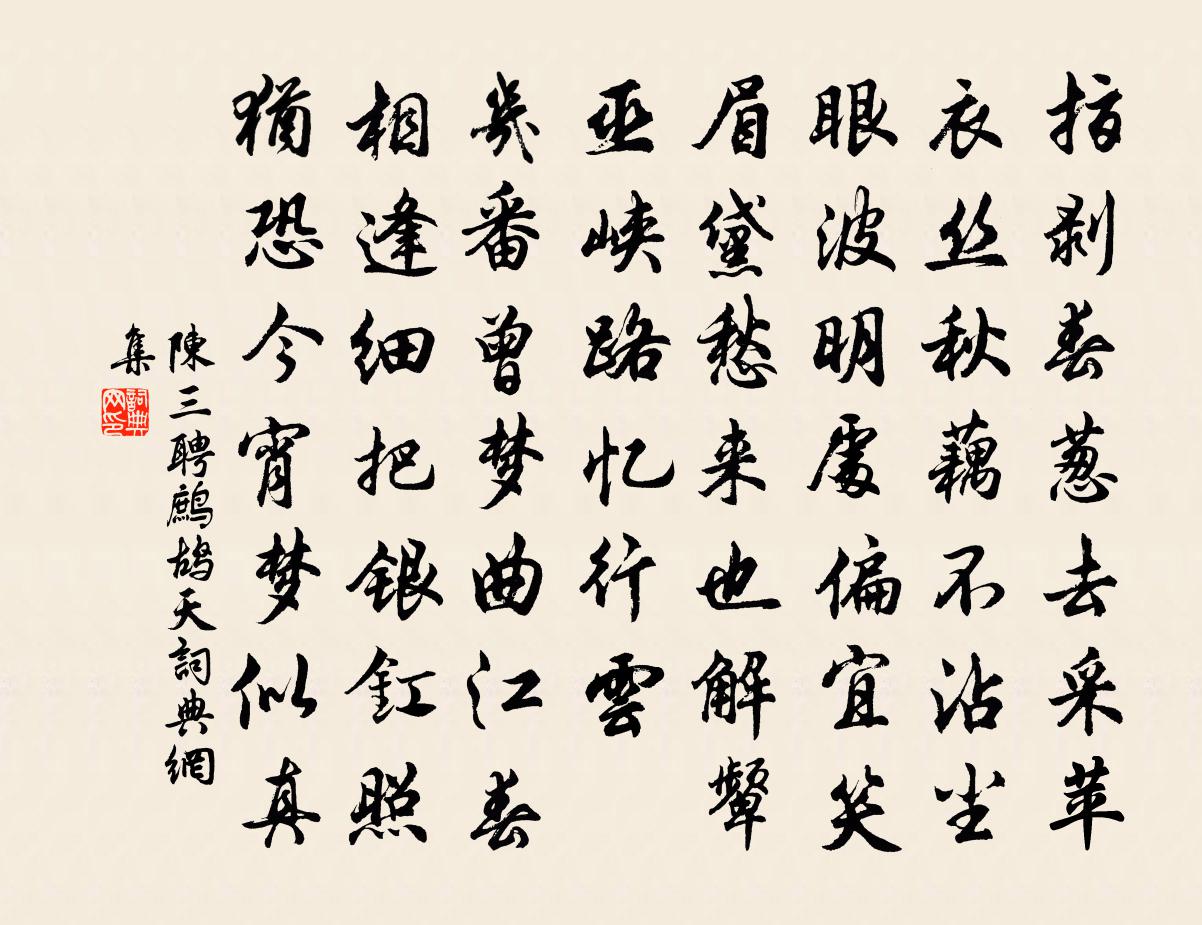 指剥春葱去采苹
衣丝秋藕不沾尘
眼波明處偏宜笑
眉黛愁来也解颦
巫峡路忆行雲
幾番曾梦曲江春
相逢细把银釭照
猶恐今宵梦似真
陳三聘鷓鴣天詞典網
集
詞典网印